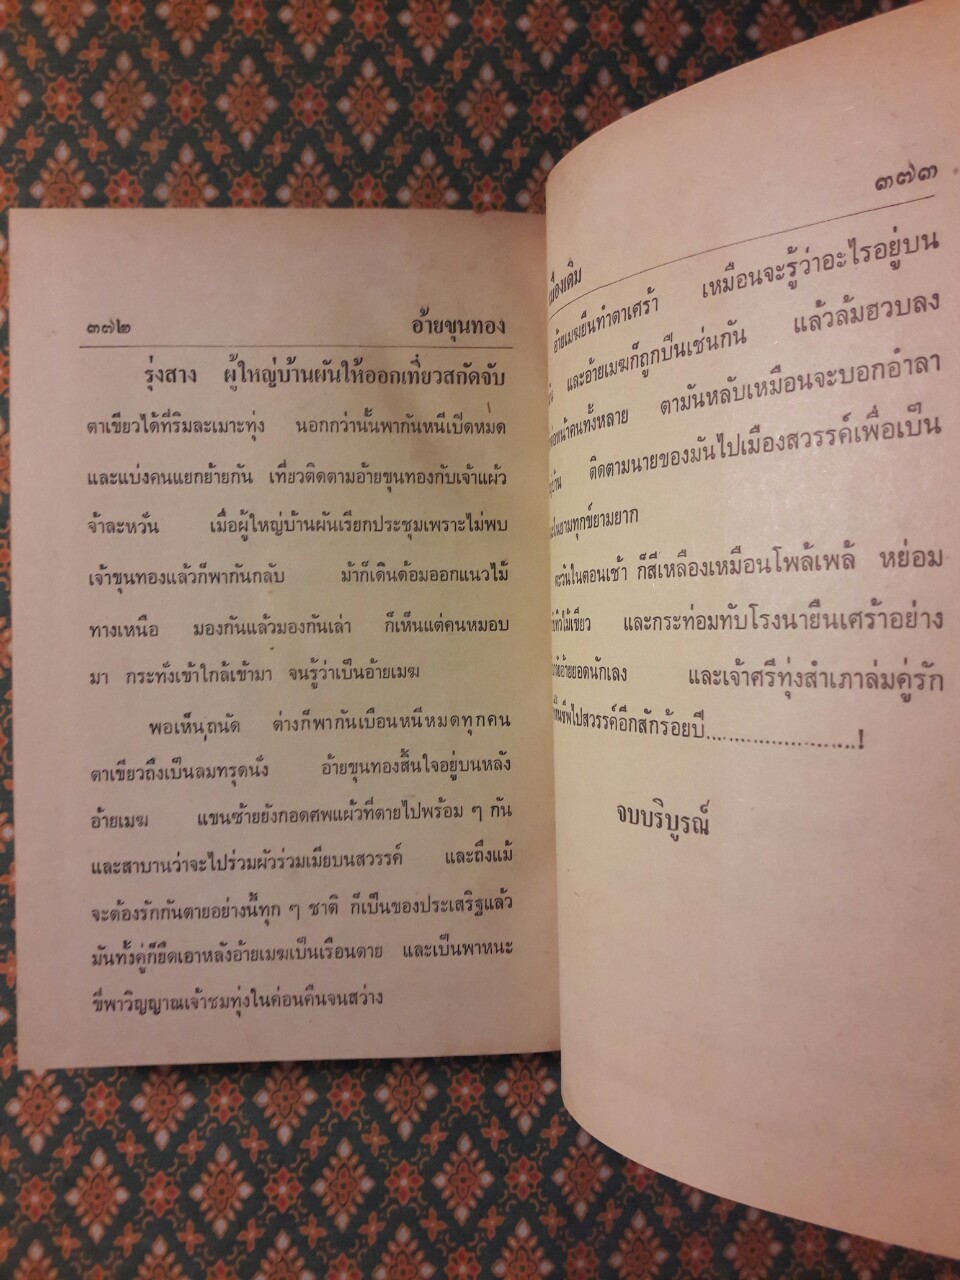 ๓๗๒ อ้ายขุนทอง
รุ่งสาง ผู้ใหญ่บ้านผันให้ออกเที่ยวสกัดจับ
ตาเขียวได้ที่ริมละเมาะทุ่ง นอกกว่านั้นพากันหนีเปิดหมด
และแบ่งคนแยกย้ายกัน เที่ยวติดตามอ้ายขุนทองกับเจ้าแผ้ว
จ้าละหวั่น เมื่อผู้ใหญ่บ้านผันเรียกประชุมเพราะไม่พบ
เจ้าขุนทองแล้วก็พากันกลับ ม้าก็เดินด้อมออกแนวไม้
ทางเหนือ มองกันแล้วมองกันเล่า ก็เห็นแต่คนหมอบ
มา กระทั่งเข้าใกล้เข้ามา จนรู้ว่าเป็นอ้ายเมฆ
พอเห็นถนัด ต่างก็พากันเบือนหนีหมดทุกคน
ตาเขียวถึงเป็นลมทรุดนั่ง อ้ายขุนทองสิ้นใจอยู่บนหลัง
อ้ายเมฆ แขนซ้ายยังกอดศพแผ้วที่ตายไปพร้อม ๆ กัน
และสาบานว่าจะไปร่วมผัวร่วมเมียบนสวรรค์ และถึงแม้
จะต้องรักกันตายอย่างนี้ทุก ๆ ชาติ ก็เป็นของประเสริฐแล้ว
มันทั้งคู่ก็ยึดเอาหลังอ้ายเมฆเป็นเรือนตาย และเป็นพาหนะ
ขี่พาวิญญาณเจ้าชมทุ่งในค่อนคืนจนสว่าง
๓๗๓
อ้ายเมฆยืนทำตาเศร้า เหมือนจะรู้ว่าอะไรอยู่บน
และอ้ายเมฆก็ถูกปืนเช่นกัน แล้วล้มฮวบลง
หน้าคนทั้งหลาย ตามันหลับเหมือนจะบอกอำลา
ติดตามนายของมันไปเมืองสวรรค์เพื่อเป็น
ในยามทุกข์ยามยาก
ตะวันในตอนเช้า ก็สีเหลืองเหมือนโพล้เพล้ หย่อม
ไม้เขียว และกระท่อมทับโรงนายืนเศร้าอย่าง
อ้ายยอดนักเลง และเจ้าศรีทุ่งสำเภาล่มคู่รัก
ชีพไปสวรรค์อีกสักร้อยปี.......................!
จบบริบูรณ์